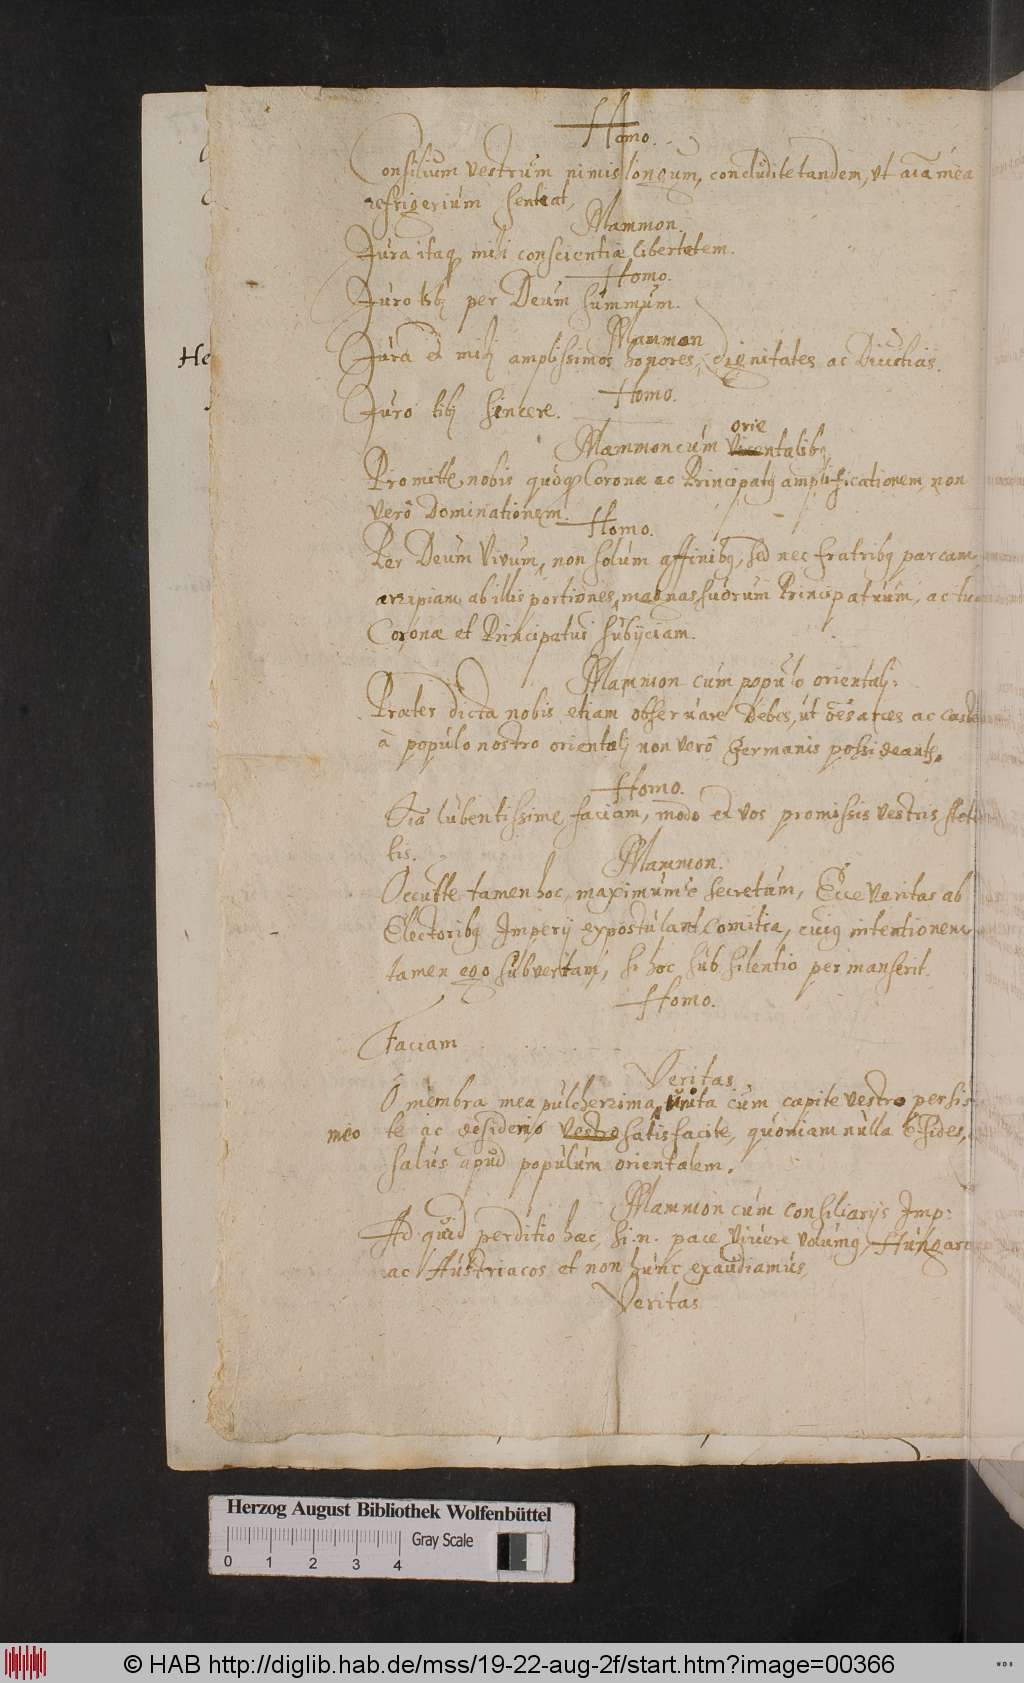 Homo.
Consilium vestrum nimis longum, concludite tandem, ut aīa mea
refrigerium sentiat,
Mammon.
Jura itaq3 mihi conscientiæ libertatem.
Homo.
Juro tibi per Deum summum.
Mammon
Jura et mihi amplissimos honores, dignitates ac Divitias.
He
Homo.
Juro tibi sincere.
orie
Mammon cúm Vicentalibq
Promitte nobis quoq3 Coronæ ac Principatq amplificationem non
verò Dominationem.
Homo.
Per Deum Vivum, non solùm affinibq, sed nec fratribq parcam
arripiam ab illis portiones, magnas suorum Principatuum, ac
Coronæ et Principatui subijciam.
Mammon cúm populo orientali:
Præter dicta nobis etiam observare Debes, ut oēs arces ac
à populo nostro orientali non verò Germanis possideantr.
Homo.
Etiā lubentissime faciam, modo et vos promissis vestris
tis.
Mammon.
Occulte tamen hoc, maximum'e secretum, Ecce Veritas ab
Electoribq Imperij expostulant Comitia, cuiq intentionem
tamen ego subvertam, si hoc sub silentio permanserit.
Homo.
Faciam
Veritas
O membra mea pulcherrima, unita cúm capite vestro persis
meo te ac desiderio vestro satisfacite, quoniam nulla e fides,
salus apud populum orientalem.
Mammon cúm Consiliarijs Imp:
Ad quid perditio hæc, si.n. pace vivere volumq, Hungaros
ac Austriacos et non hunc exaudiamus
Veritas
Herzog August Bibliothek Wolfenbüttel
0 1 2 3 4 Gray Scale
© HAB http://diglib.hab.de/mss/19-22-aug-2f/start.htm?image=00366